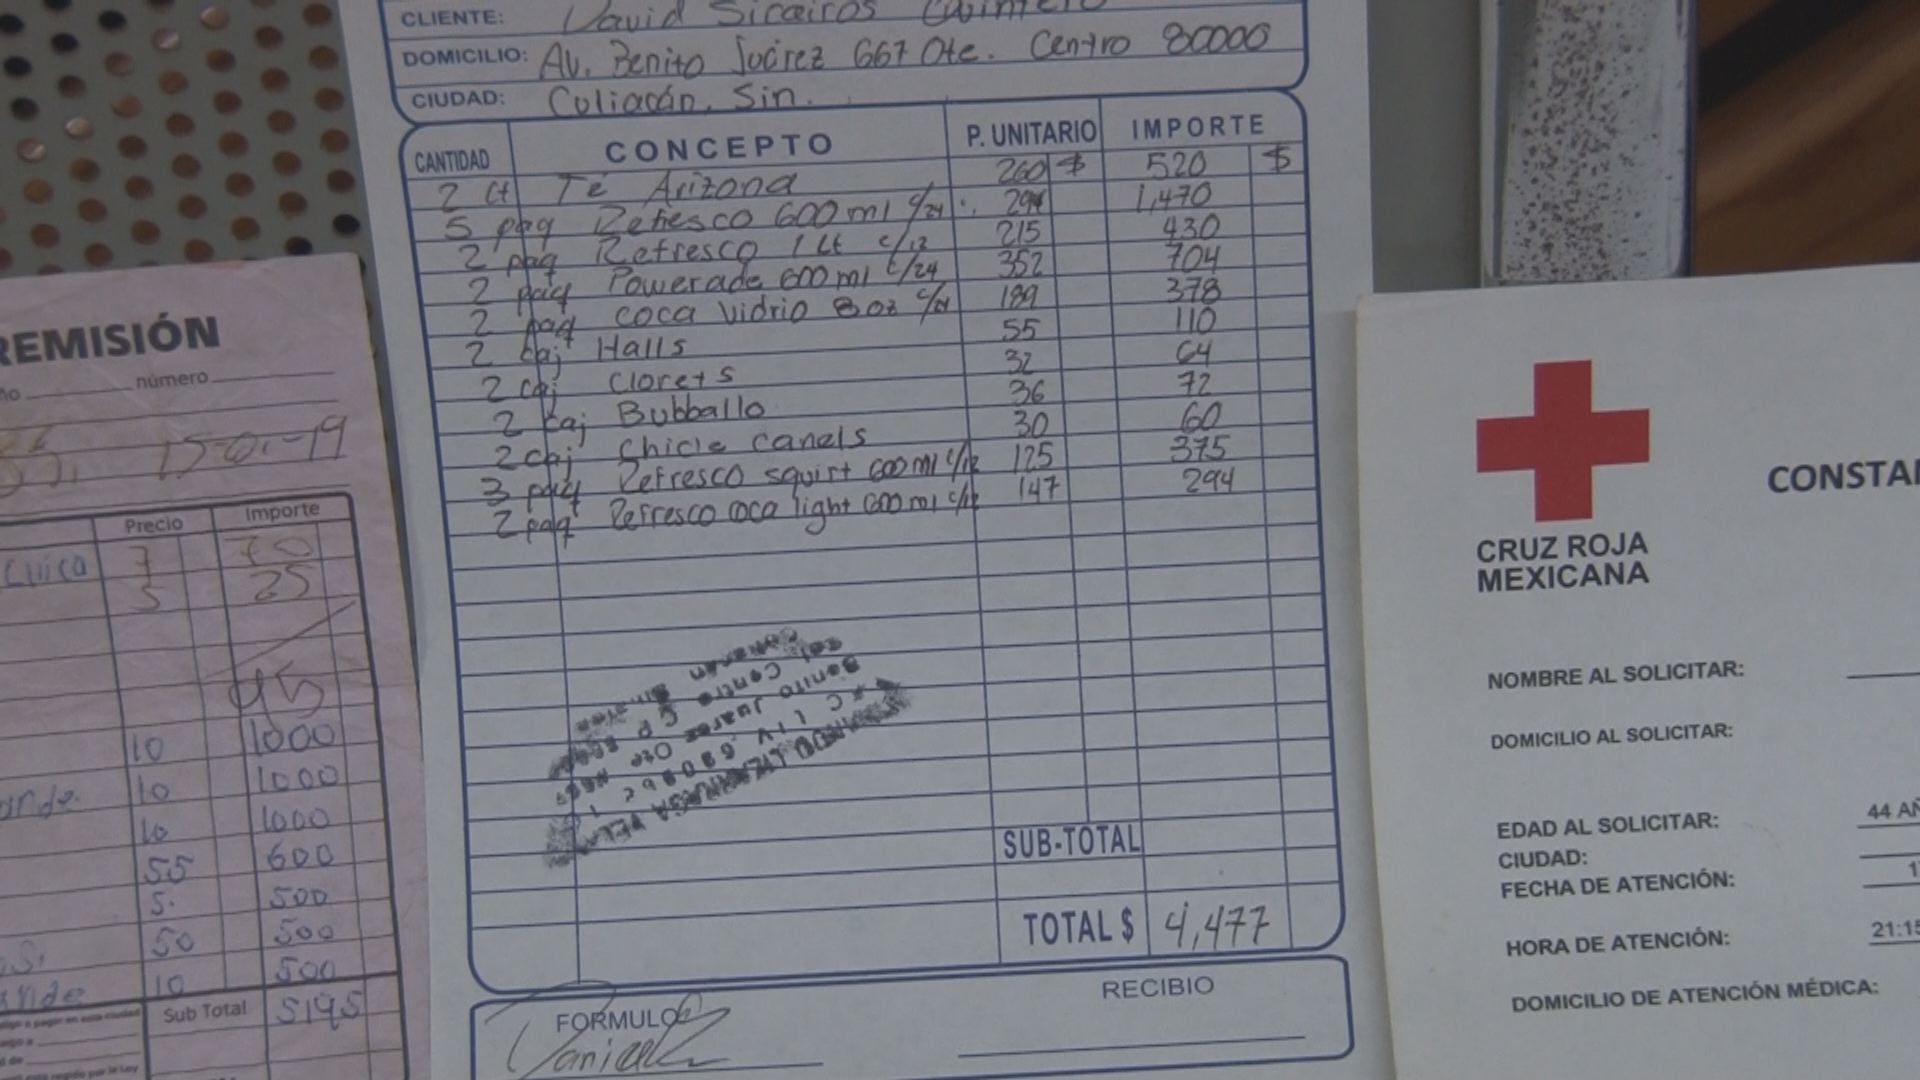 CLIENTE: David Sicairos Quintero
DOMICILIO: Av. Benito Juárez 667 Ote. Centro 80000
CIUDAD: Culiacán, Sin.
CANTIDAD CONCEPTO P. UNITARIO IMPORTE
2 Ct Té Arizona 260 $ 520 $
5 paq Refresco 600 ml c/24 294 1,470
2 paq Refresco 1 Lt c/12 215 430
2 paq Powerade 600 ml c/24 352 704
2 paq coca vidrio 8 oz c/24 189 378
2 caj Halls 55 110
2 caj Clorets 32 64
2 caj Bubballo 36 72
2 caj Chicle canels 30 60
3 paq Refresco squirt 600 ml c/12 125 375
2 paq Refresco coca light 600 ml c/12 147 294
SUB-TOTAL
TOTAL $ 4,477
FORMULO
RECIBIO
REMISIÓN
número
15-01-19
Precio Importe
7 70
5 25
95
10 1000
10 1000
10 1000
55 600
5. 500
50 500
10 500
Sub Total 5195
CRUZ ROJA
MEXICANA
CONSTAN
NOMBRE AL SOLICITAR:
DOMICILIO AL SOLICITAR:
EDAD AL SOLICITAR: 44 AÑ
CIUDAD:
FECHA DE ATENCIÓN: 1
HORA DE ATENCIÓN: 21:15
DOMICILIO DE ATENCIÓN MÉDICA: